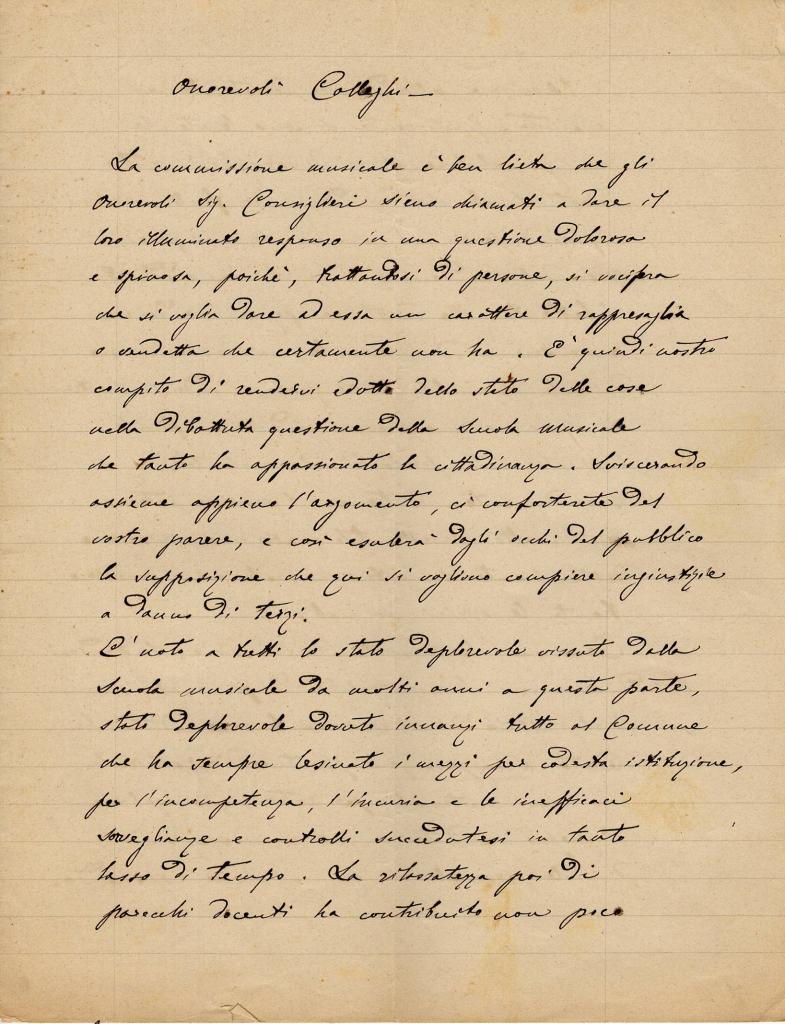 Onorevoli Colleghi –
La commissione musicale è ben lieta che gli
Onorevoli Sig. Consiglieri sieno chiamati a dare il
loro illuminato responso in una questione dolorosa
e spinosa, poichè, trattandosi di persone, si vocifera
che si voglia dare ad essa un carattere di rappresaglia
o vendetta che certamente non ha. E' quindi nostro
compito di rendervi edotti dello stato delle cose
nella dibattuta questione della Scuola musicale
che tanto ha appassionato la cittadinanza. Sviscerando
assieme appieno l'argomento, ci conforterete del
vostro parere, e così esulerà dagli occhi del pubblico
la supposizione che qui si vogliono compiere ingiustizie
a danno di terzi.
E' noto a tutti lo stato deplorevole vissuto dalla
Scuola musicale da molti anni a questa parte,
stato deplorevole dovuto innanzi tutto al Comune
che ha sempre lesinato i mezzi per codesta istituzione,
per l'incompetenza, l'incuria e le inefficaci
sorveglianze e controlli succedutesi in tanto
lasso di tempo. La rilassatezza poi di
parecchi docenti ha contribuito non poco